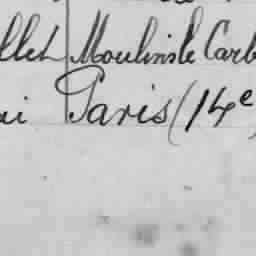 llet Moulins le Carb
ai Paris (14e)